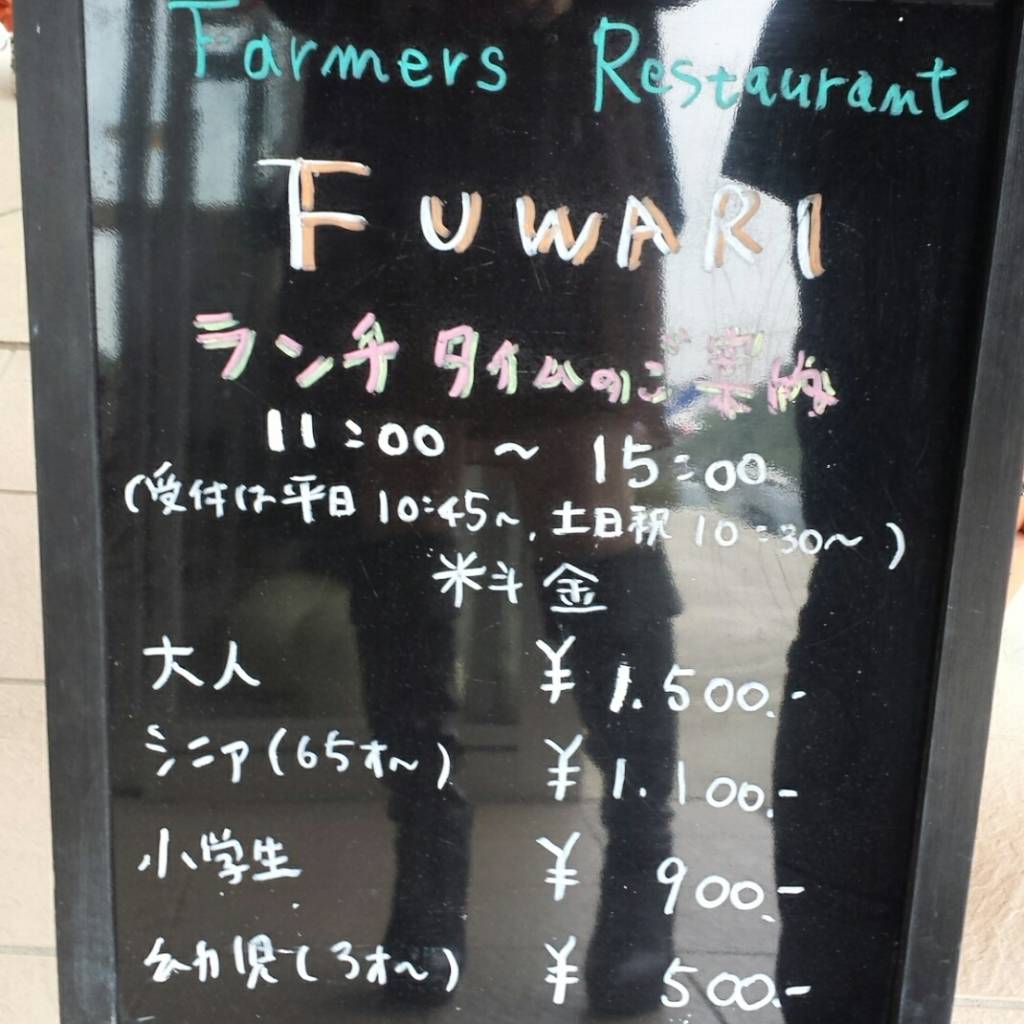 Farmers Restaurant
FUWARI
ランチタイムのご案内
11:00 ～ 15:00
(受付は平日 10:45～, 土日祝 10:30～)
料金
大人 ¥1.500.-
シニア(65才～) ¥1.100.-
小学生 ¥900.-
幼児(3才～) ¥500.-